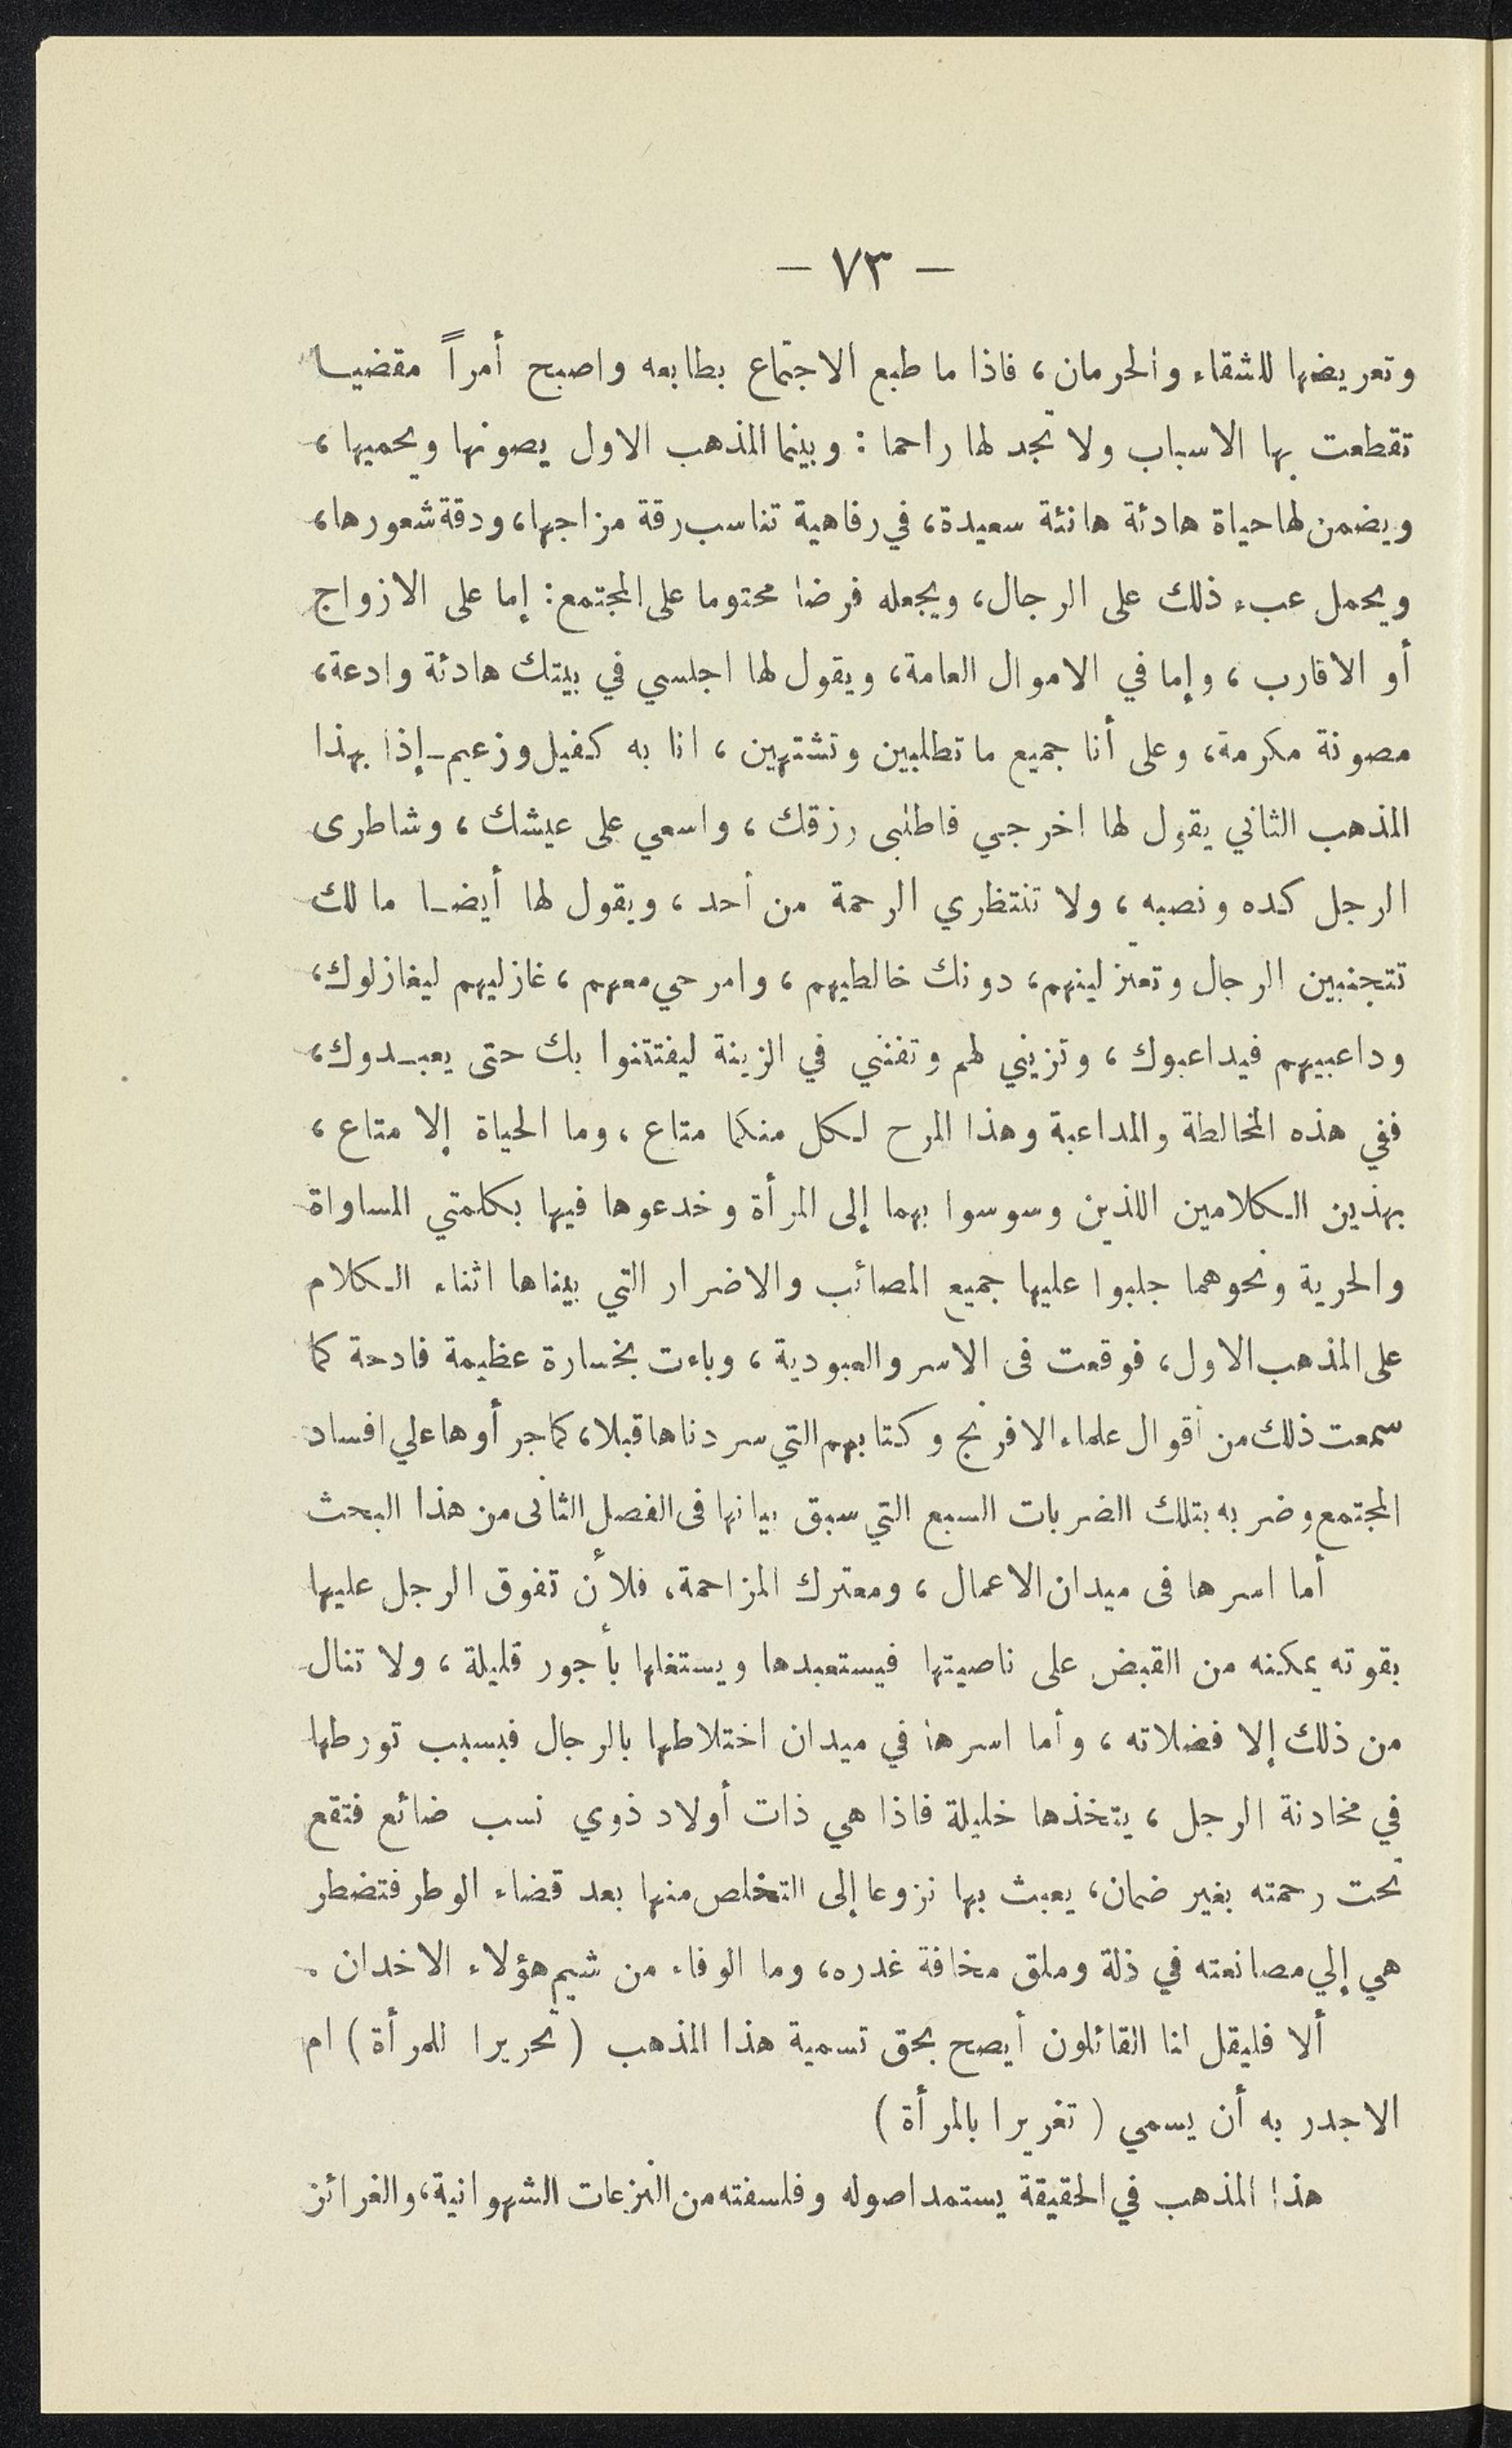 — ٧٣ —
وتعريضها للشقاء والحرمان، فاذا ما طبع الاجتماع بطابعه واصبح أمراً مقضيا
تقطعت بها الاسباب ولا تجد لها راحما : وبينما المذهب الاول يصونها ويحميها،
ويضمن لها حياة هادئة هانئة سعيدة، في رفاهية تناسب رقة مزاجها، ودقة شعورها،
ويحمل عبء ذلك على الرجال، ويجعله فرضا محتوما على المجتمع: إما على الازواج
أو الاقارب، وإما في الاموال العامة، ويقول لها اجلسي في بيتك هادئة وادعة،
مصونة مكرمة، وعلى أنا جميع ما تطلبين وتشتهين، انا به كفيل وزعيم ـ إذا بهذا
المذهب الثاني يقول لها اخرجي فاطلبى رزقك، واسعي على عيشك، وشاطرى
الرجل كده ونصبه، ولا تنتظري الرحمة من أحد، ويقول لها أيضا ما لك
تتجنبين الرجال وتعتزلينهم، دونك خالطيهم، وامرحي معهم، غازليهم ليغازلوك،
وداعبيهم فيداعبوك، وتزيني لهم وتفنني في الزينة ليفتتنوا بك حتى يعبدوك،
ففي هذه المخالطة والمداعبة وهذا المرح لكل منكما متاع، وما الحياة إلا متاع،
بهذين الكلامين اللذين وسوسوا بهما إلى المرأة وخدعوها فيها بكلمتي المساواة
والحرية ونحوهما جلبوا عليها جميع المصائب والاضرار التي بيناها اثناء الكلام
على المذهب الاول، فوقعت فى الاسر والعبودية، وباءت بخسارة عظيمة فادحة كما
سمعت ذلك من أقوال علماء الافرنج وكتابهم التي سردناها قبلا، كما جرأوها علي افساد
المجتمع وضربه بتلك الضربات السبع التي سبق بيانها فى الفصل الثانى من هذا البحث
أما اسرها فى ميدان الاعمال، ومعترك المزاحمة، فلأن تفوق الرجل عليها
بقوته يمكنه من القبض على ناصيتها فيستعبدها ويستغلها بأجور قليلة، ولا تنال
من ذلك إلا فضلاته، وأما اسرها في ميدان اختلاطها بالرجال فبسبب تورطها
في مخادنة الرجل، يتخذها خليلة فاذا هي ذات أولاد ذوي نسب ضائع فتقع
تحت رحمته بغير ضمان، يعبث بها نزوعا إلى التخلص منها بعد قضاء الوطر فتضطر
هي إلي مصانعته في ذلة وملق مخافة غدره، وما الوفاء من شيم هؤلاء الاخدان .
ألا فليقل لنا القائلون أيصح بحق تسمية هذا المذهب ( تحريرا للمرأة ) ام
الاجدر به أن يسمي ( تغريرا بالمرأة )
هذا المذهب في الحقيقة يستمد اصوله وفلسفته من النزعات الشهوانية، والغرائز